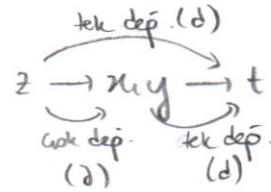 tek dep. (d)
z → x, y → t
çok dep. tek dep.
(∂) (d)